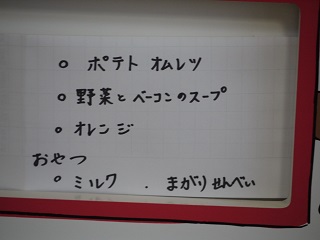 ○ ポテト オムレツ
○ 野菜とベーコンのスープ
○ オレンジ
おやつ
○ ミルク . まがりせんべい